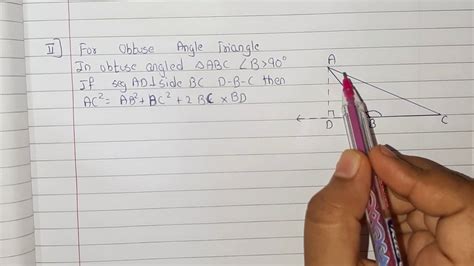 II] For Obtuse Angle Triangle
In obtuse angled △ABC ∠B>90°
If seg AD⊥side BC D-B-C then
AC² = AB²+BC²+2 BC × BD
A
D B C